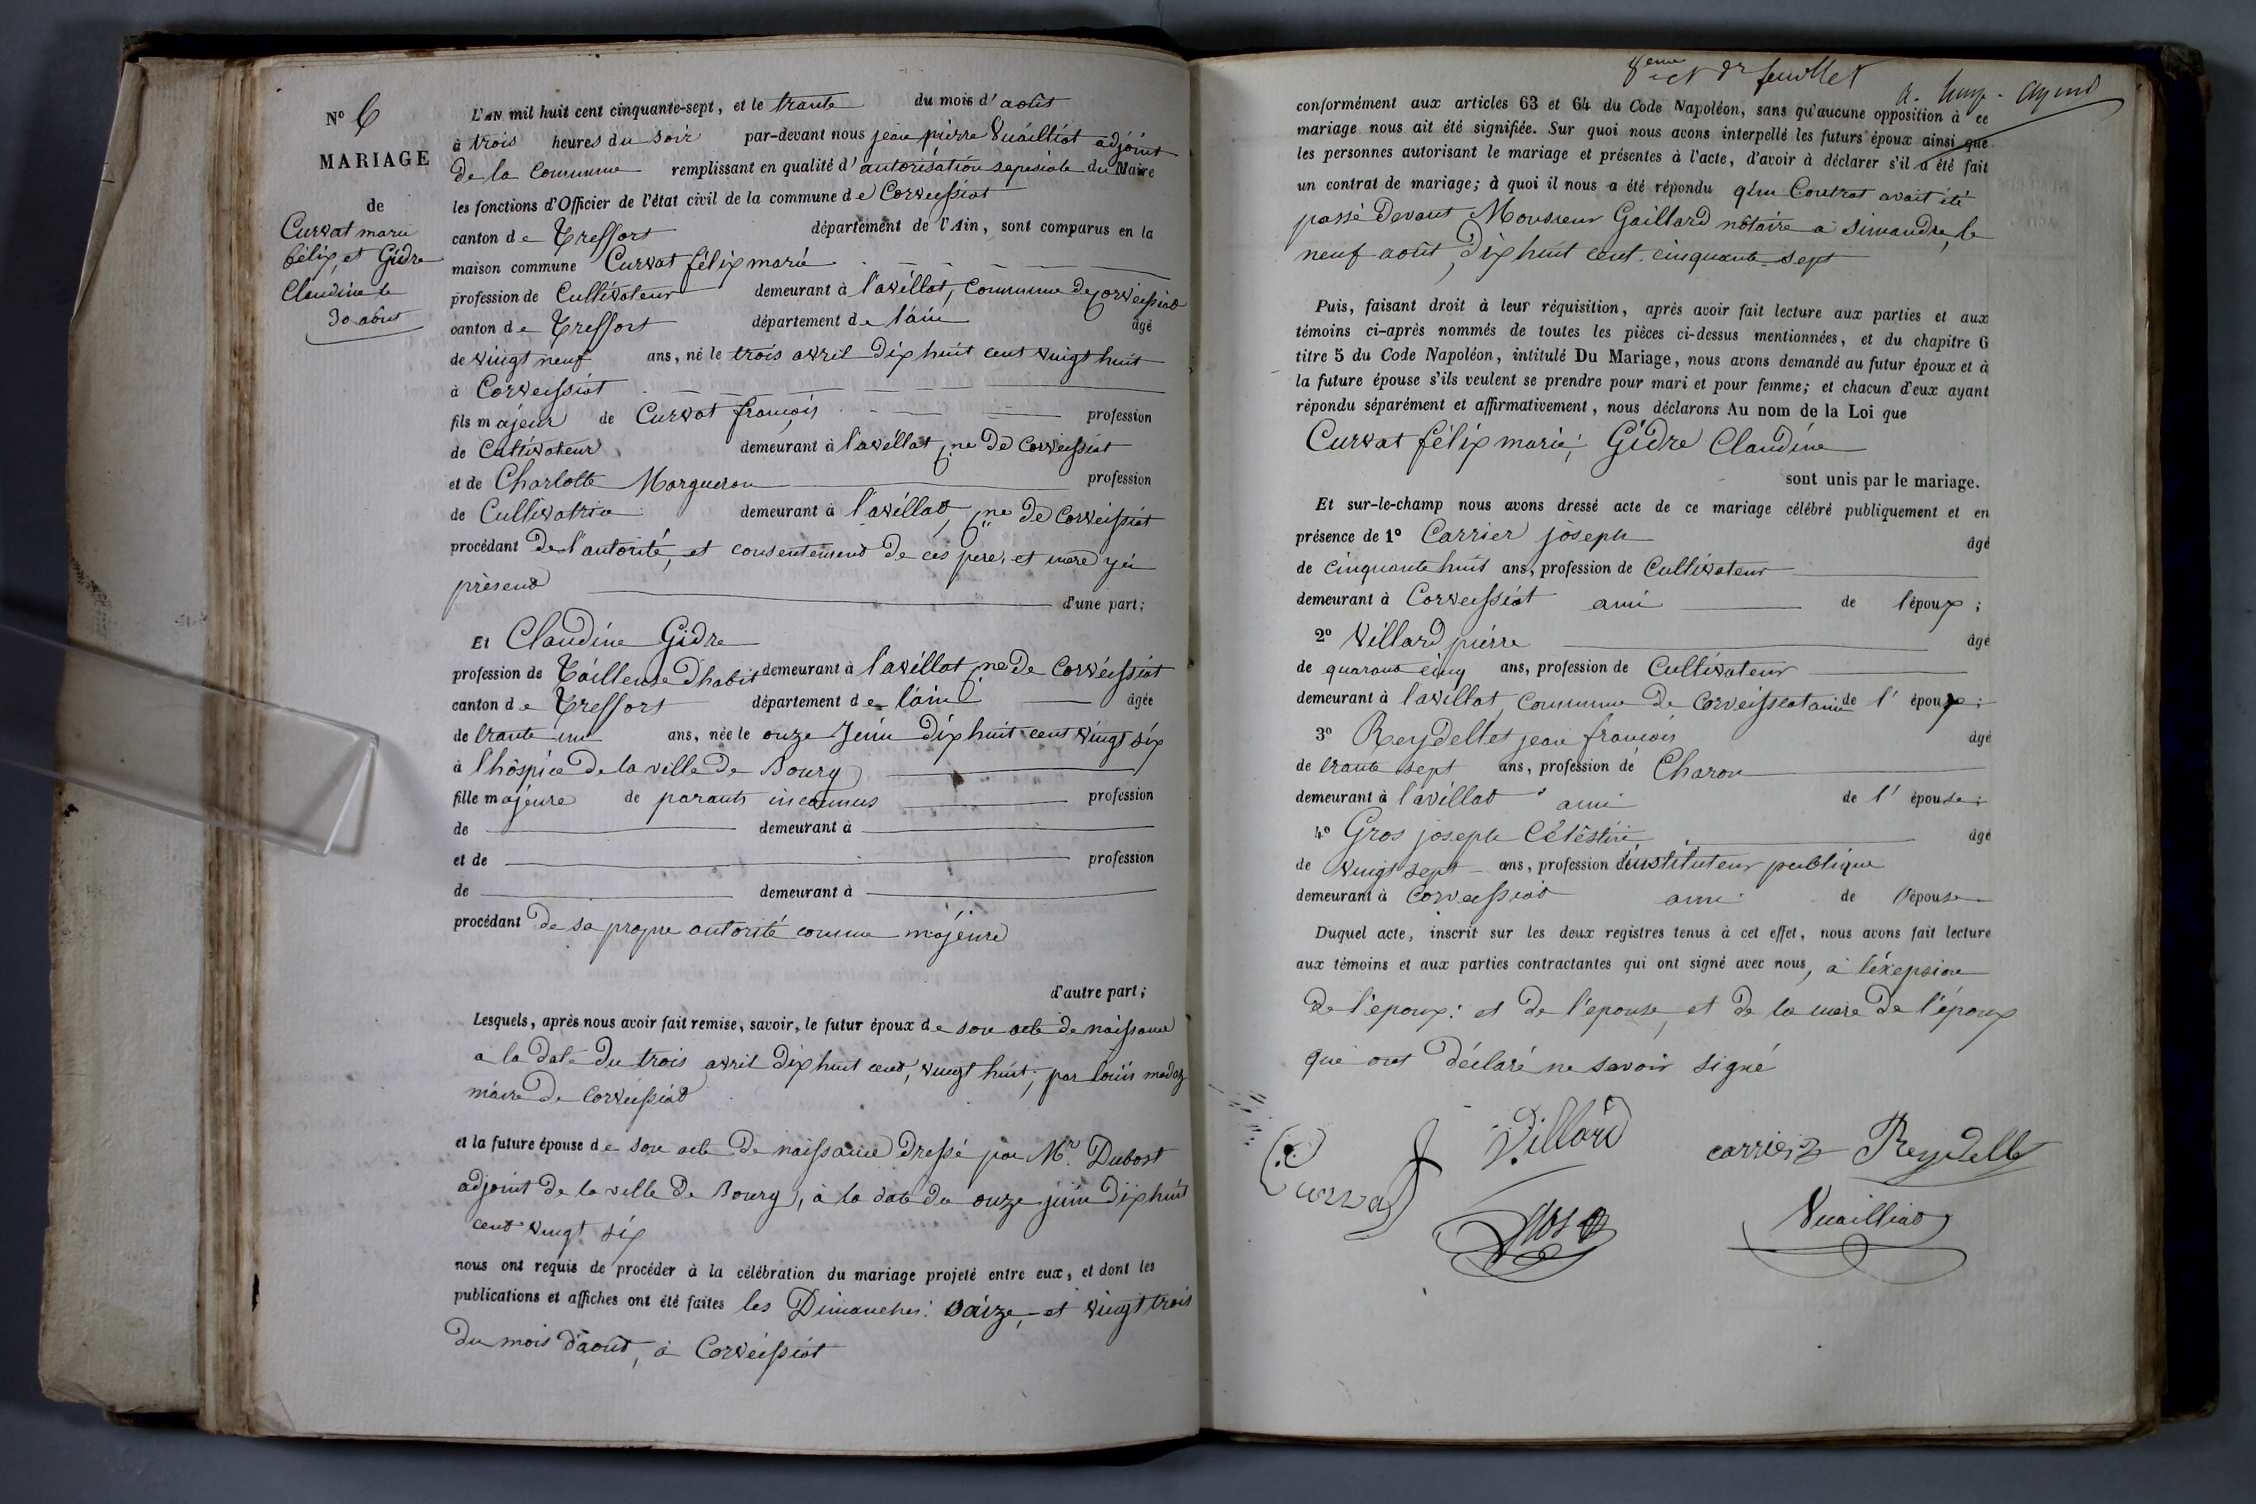 N° 6
MARIAGE
de
Curvat marie
félix, et Gidre
Claudine le
30 août
L'AN mil huit cent cinquante-sept, et le trante du mois d'août
à trois heures du soir par-devant nous jean pierre Vuailliat adjoint
de la Commune remplissant en qualité d'autorisation sapesiale du Maire
les fonctions d'Officier de l'état civil de la commune de Corveissiat
canton de Treffort département de l'Ain, sont comparus en la
maison commune Curvat félix marie
profession de Cultivateur demeurant à lavillat, commune de Corveissiat
canton de Treffort département de l'ain âgé
de vingt neuf ans, né le trois avril dix huit cent vingt huit
à Corveissiat
fils majeur de Curvat françois profession
de Cultivateur demeurant à lavillat, Cne de Corveissiat
et de Charlotte Margueron profession
de Cultivatrice demeurant à lavillat, Cne de Corveissiat
procédant de l'autorité, et consentement de ces père, et mère yci
présend d'une part;
Et Claudine Gidre
profession de Tailleuse d'habit demeurant à lavillat, Cne de Corveissiat
canton de Treffort département de l'ain âgée
de trante un ans, née le onze Juin dix huit cent vingt six
à l'hospice de la ville de Bourg
fille majeure de parants inconnus profession
de demeurant à
et de profession
de demeurant à
procédant de sa propre autorité comme majeure
d'autre part;
Lesquels, après nous avoir fait remise, savoir, le futur époux de son acte de naissance
a la date du trois avril dix huit cent, vingt huit, par louis
maire de Corveissiat
et la future épouse de son acte de naissance dressé par Mr. Dubost
adjoint de la ville de Bourg, à la date du onze juin dix huit
cent vingt six
nous ont requis de procéder à la célébration du mariage projeté entre eux, et dont les
publications et affiches ont été faites les Dimanches: saize, et vingt trois
du mois d'août, à Corveissiat
8eme et dr feuillet
conformément aux articles 63 et 64 du Code Napoléon, sans qu'aucune opposition à ce
mariage nous ait été signifiée. Sur quoi nous avons interpellé les futurs époux ainsi que
les personnes autorisant le mariage et présentes à l'acte, d'avoir à déclarer s'il a été fait
un contrat de mariage; à quoi il nous a été répondu q'un Contrat avait été
passé devant Monsieur Gaillard nôtaire à simandre, le
neuf août, dix huit cent cinquante sept
Puis, faisant droit à leur réquisition, après avoir fait lecture aux parties et aux
témoins ci-après nommés de toutes les pièces ci-dessus mentionnées, et du chapitre 6
titre 5 du Code Napoléon, intitulé Du Mariage, nous avons demandé au futur époux et à
la future épouse s'ils veulent se prendre pour mari et pour femme; et chacun d'eux ayant
répondu séparément et affirmativement, nous déclarons Au nom de la Loi que
Curvat félix marie; Gidre Claudine
sont unis par le mariage.
Et sur-le-champ nous avons dressé acte de ce mariage célébré publiquement et en
présence de 1° Carrier joseph âgé
de cinquante huit ans, profession de Cultivateur
demeurant à Corveissiat ami de l'époux;
2° Villard pierre âgé
de quarant cinq ans, profession de Cultivateur
demeurant à lavillat, commune de Corveissiat ami de l'époux;
3° Reydellet jean francois âgé
de trante sept ans, profession de Charon
demeurant à lavillat ami de l'épouse;
4° Gros joseph Céléstin âgé
de vingt sept ans, profession d'instituteur publique
demeurant à Corveissiat ami de l'épouse
Duquel acte, inscrit sur les deux registres tenus à cet effet, nous avons fait lecture
aux témoins et aux parties contractantes qui ont signé avec nous, à l'éxepsion
de l'époux: et de l'épouse, et de la mère de l'époux
qui ont déclaré ne savoir signé
Villard carrier Reydellet
Curvat
Gros Vuailliat